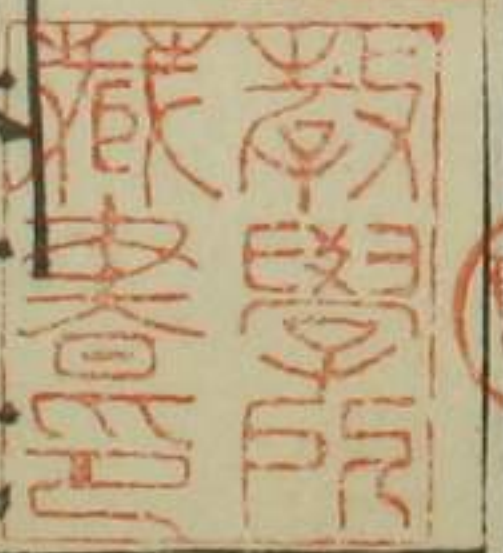 教學所
藏書印